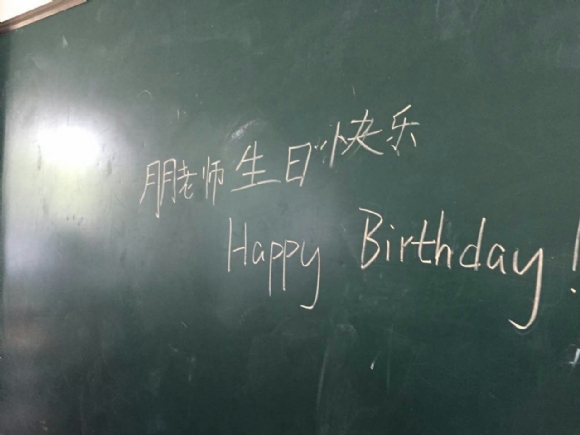 朋老师生日快乐
Happy Birthday!